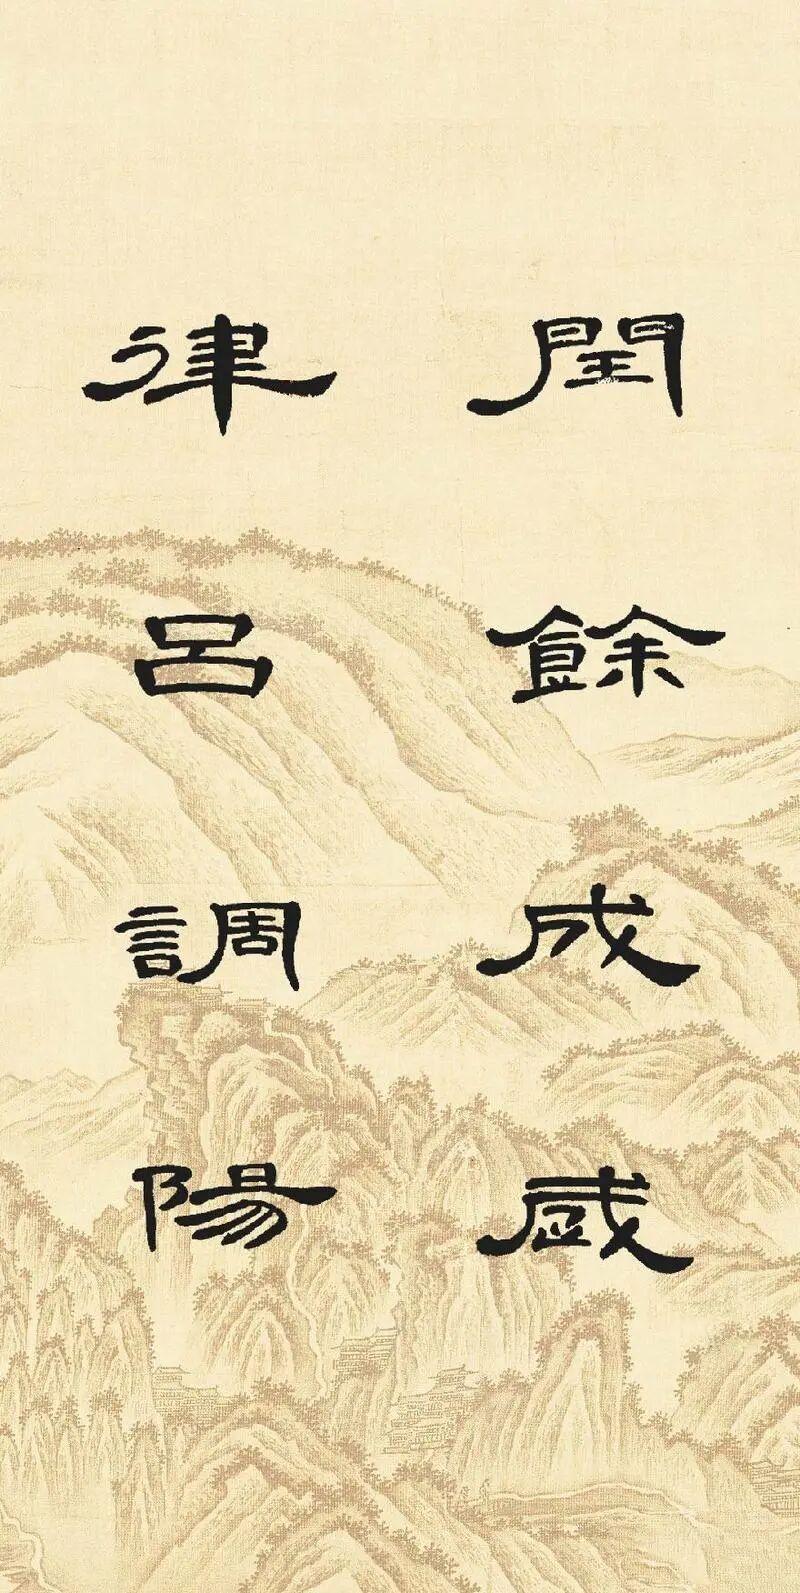 閏餘成歲
律呂調陽